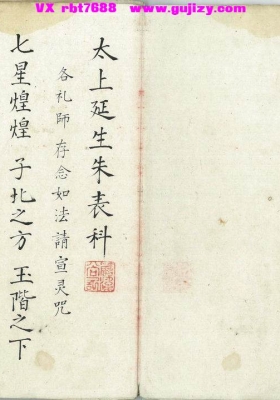 VX rbt7688 www.gujizy.com
太上延生朱表科
各礼師 存念如法 請宣灵咒
七星煌煌 子北之方 玉階之下